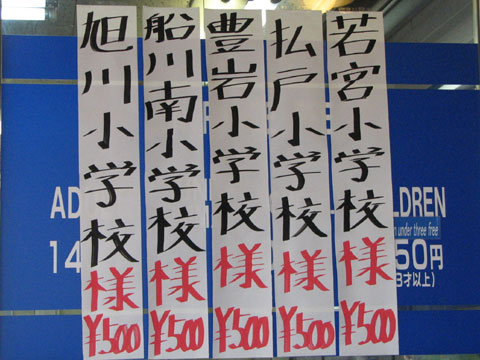 若宮小学校様 ¥500
払戸小学校様 ¥500
豊岩小学校様 ¥500
船川南小学校様 ¥500
旭川小学校様 ¥500
AD
LDREN
under three free
14
50円
3才以上)